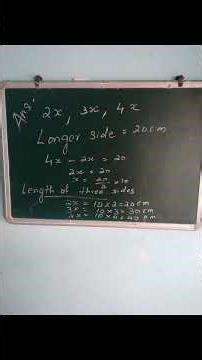 Ans:
2x, 3x, 4x
Longer side = 20cm
4x - 2x = 20
2x = 20
x = 20/2 = 10
Length of three sides
2x = 10x2=20cm
3x = 10x3=30cm
4x = 10x4=40cm